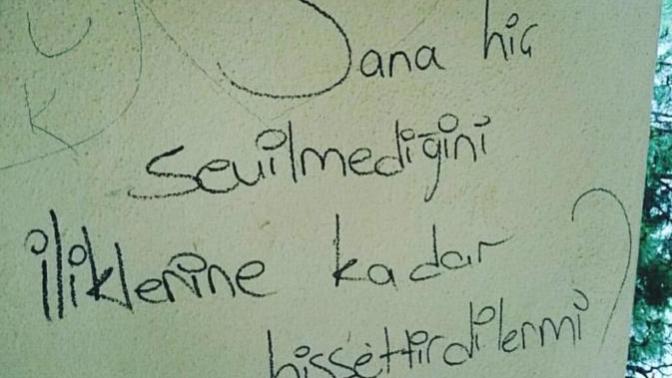 Sana hiç
sevilmediğini
iliklerine kadar
hissettirdilermi ?